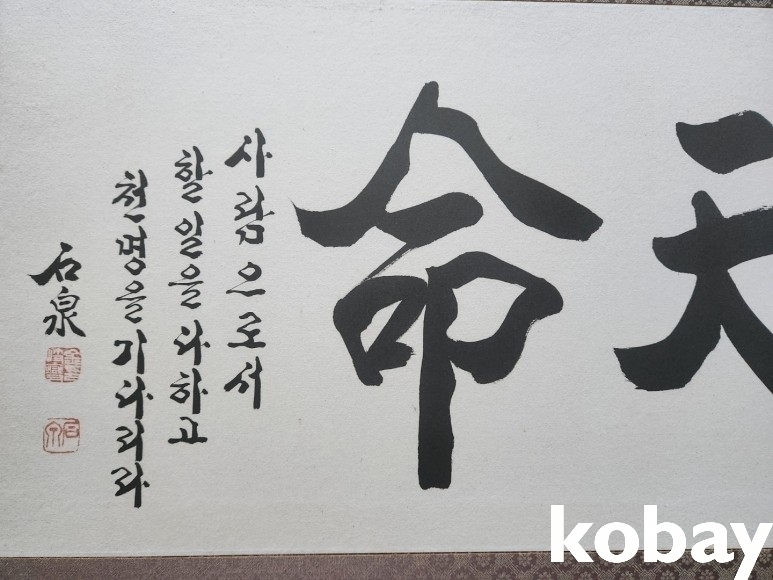 天命
사람으로서
할일을다하고
천명을기다리라
石泉
kobay